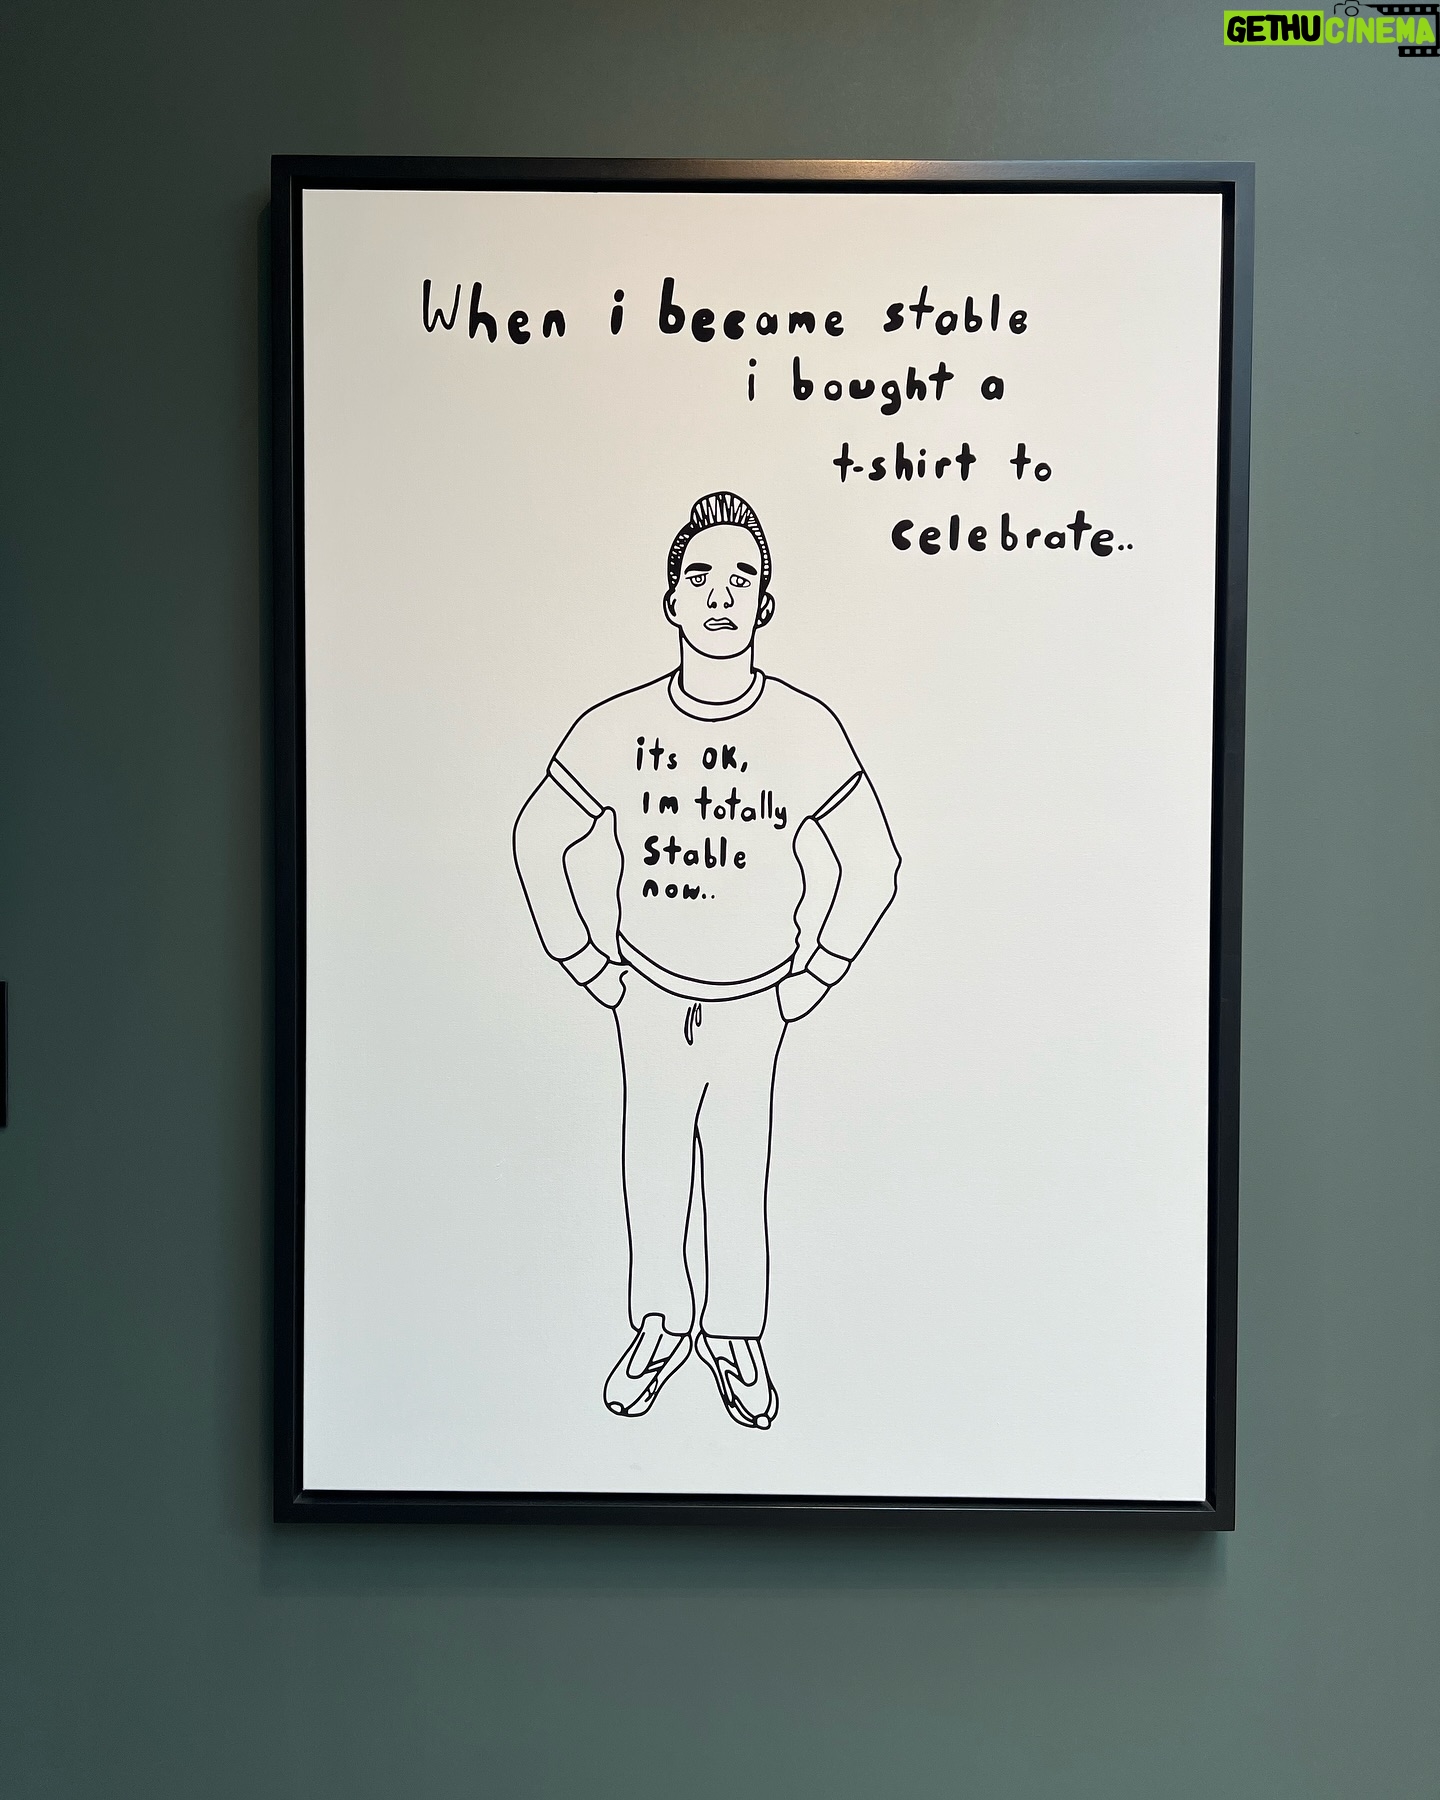 GETHUCINEMA
When i became stable
i bought a
t-shirt to
celebrate..
its OK,
Im totally
Stable
now..